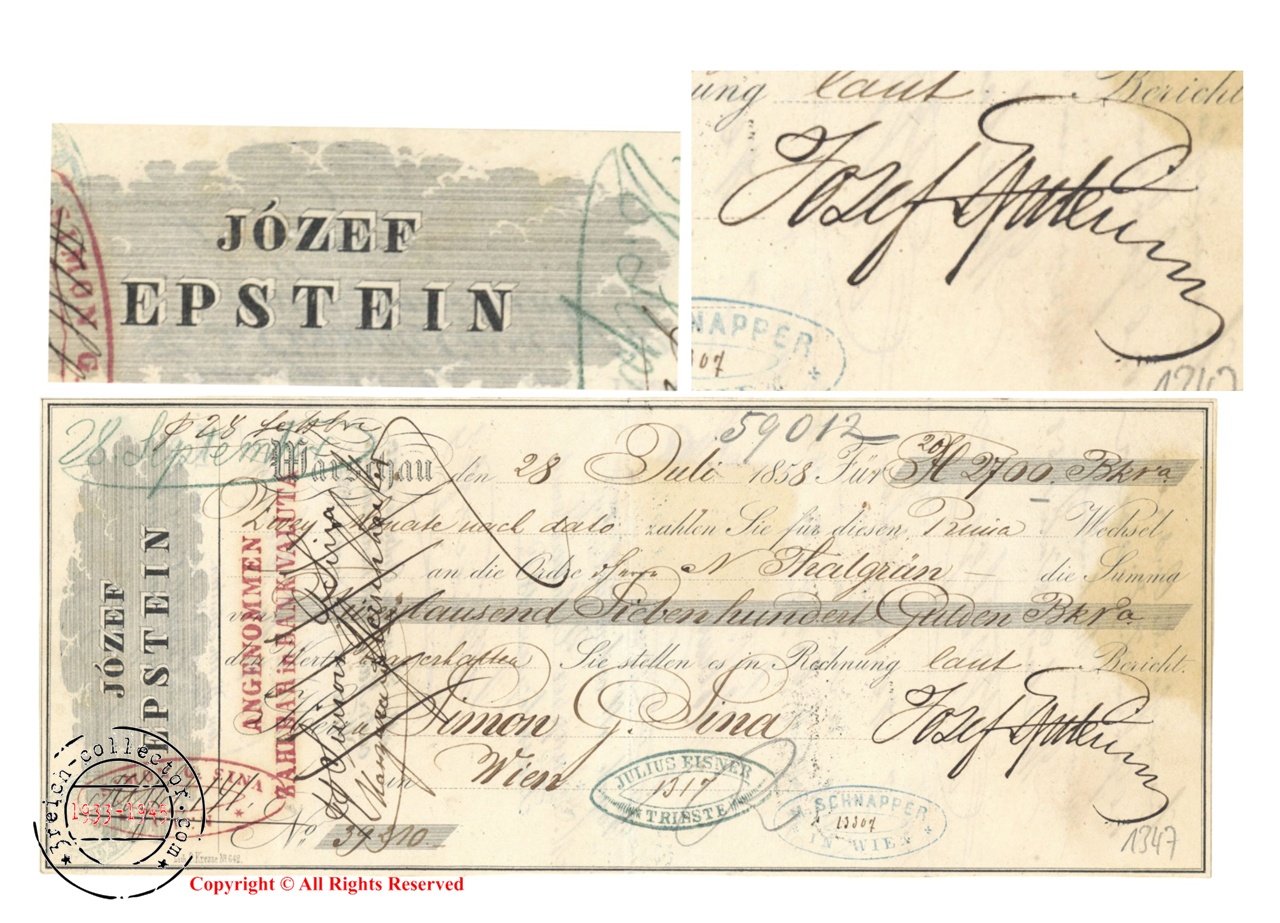 JÓZEF
EPSTEIN
laut Bericht
Józef Epstein
SCHNAPPER
1347
28. September
59012
Warschau den 28 Juli 1858 Für 2700. Bkva
Zwey Monate nach dato zahlen Sie für diesen Prima Wechsel
an die Ordre N Thalgrün — die Summa
von tausend Siebenhundert Gulden Bkva
den Werth Sie stellen es in Rechnung laut Bericht.
Simon G. Sina
in Wien
Józef Epstein
JÓZEF
EPSTEIN
ANGENOMMEN
ZAHLBAR in BANKVALUTA
SINA
JULIUS EISNER
1317
TRIESTE
SCHNAPPER
13307
IN WIEN
No 39310.
1347
3reich-collector.com
1933-1945
Copyright © All Rights Reserved